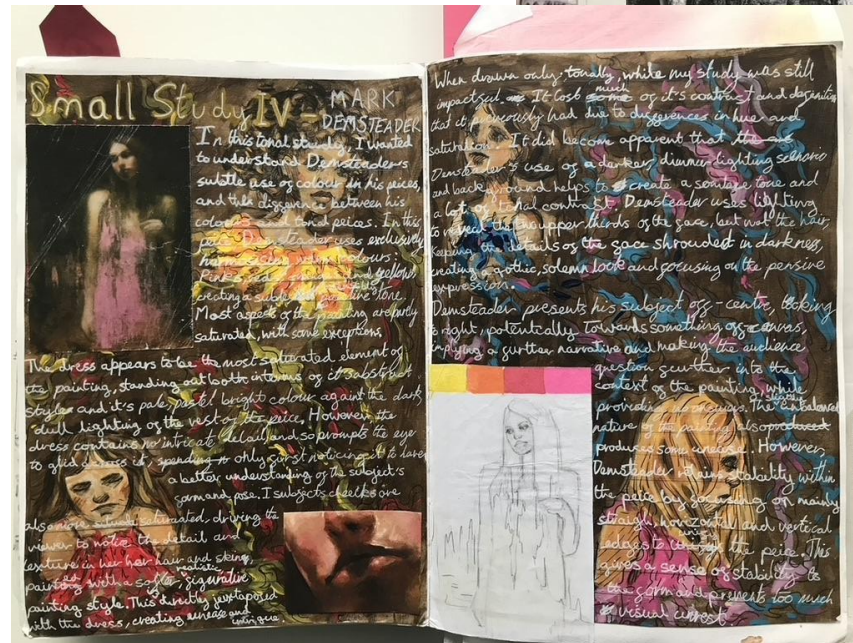 Small Study IV -
MARK
DEMSTEADER
In this tonal study, I wanted
to understand Demsteader's
subtle use of colour in his peices,
and the difference between his
colour and tonal peices. In this
peice Demsteader uses exclusively
harmonising warm colours:
Pinks, and yellows,
creating a subtle tone.
Most aspects of the painting are partly
saturated, with some exceptions
The dress appears to be the most saturated element of
the painting, standing out both in terms of it's abstract
styles and it's pale, pastel bright colour against the dark,
dull lighting of the rest of the peice. However the
dress contains no intricate detail and so prompts the eye
to glid across it, spending only first noticing it to have
a better understanding of the subject's
form and pose. I subjects cheeks are
also more saturated, driving the
viewer to notice the detail and
texture in her hair and skin,
painting with a softer, realistic figurative
painting style. This directly juxtaposed
with the dress, creating unease and
intrigue
When drawn only tonally, while my study was still
impactful, It lost much of it's contrast and
that it previously had due to differences in hue and
saturation. It did become apparent that the
Demsteader's use of a darker, dimmer lighting
and background helps to create a sombre tone and
a lot of tonal contrast. Demsteader uses lighting
to reveal the two upper thirds of the face, but not the hair,
Keeping the details of the face shrouded in darkness,
creating a gothic, solemn look and focusing on the pensive
expression.
Demsteader presents his subject off-centre, looking
to right, potentially towards something off-canvas,
implying a further narrative and making the audience
question further into the
context of the painting, while
providing no answers. The slightly unbalanced
nature of the painting also produced
produces some unease. However,
Demsteader retains stability within
the peice by focusing on mainly
straight, horizontal and vertical
edges to the peice. This
gives a sense of stability to
the form and prevents too much
visual unrest